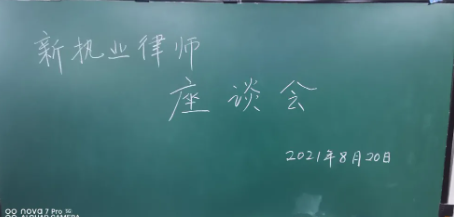 新执业律师
座谈会
2021年8月20日
nova 7 Pro 5G
AI QUAD CAMERA